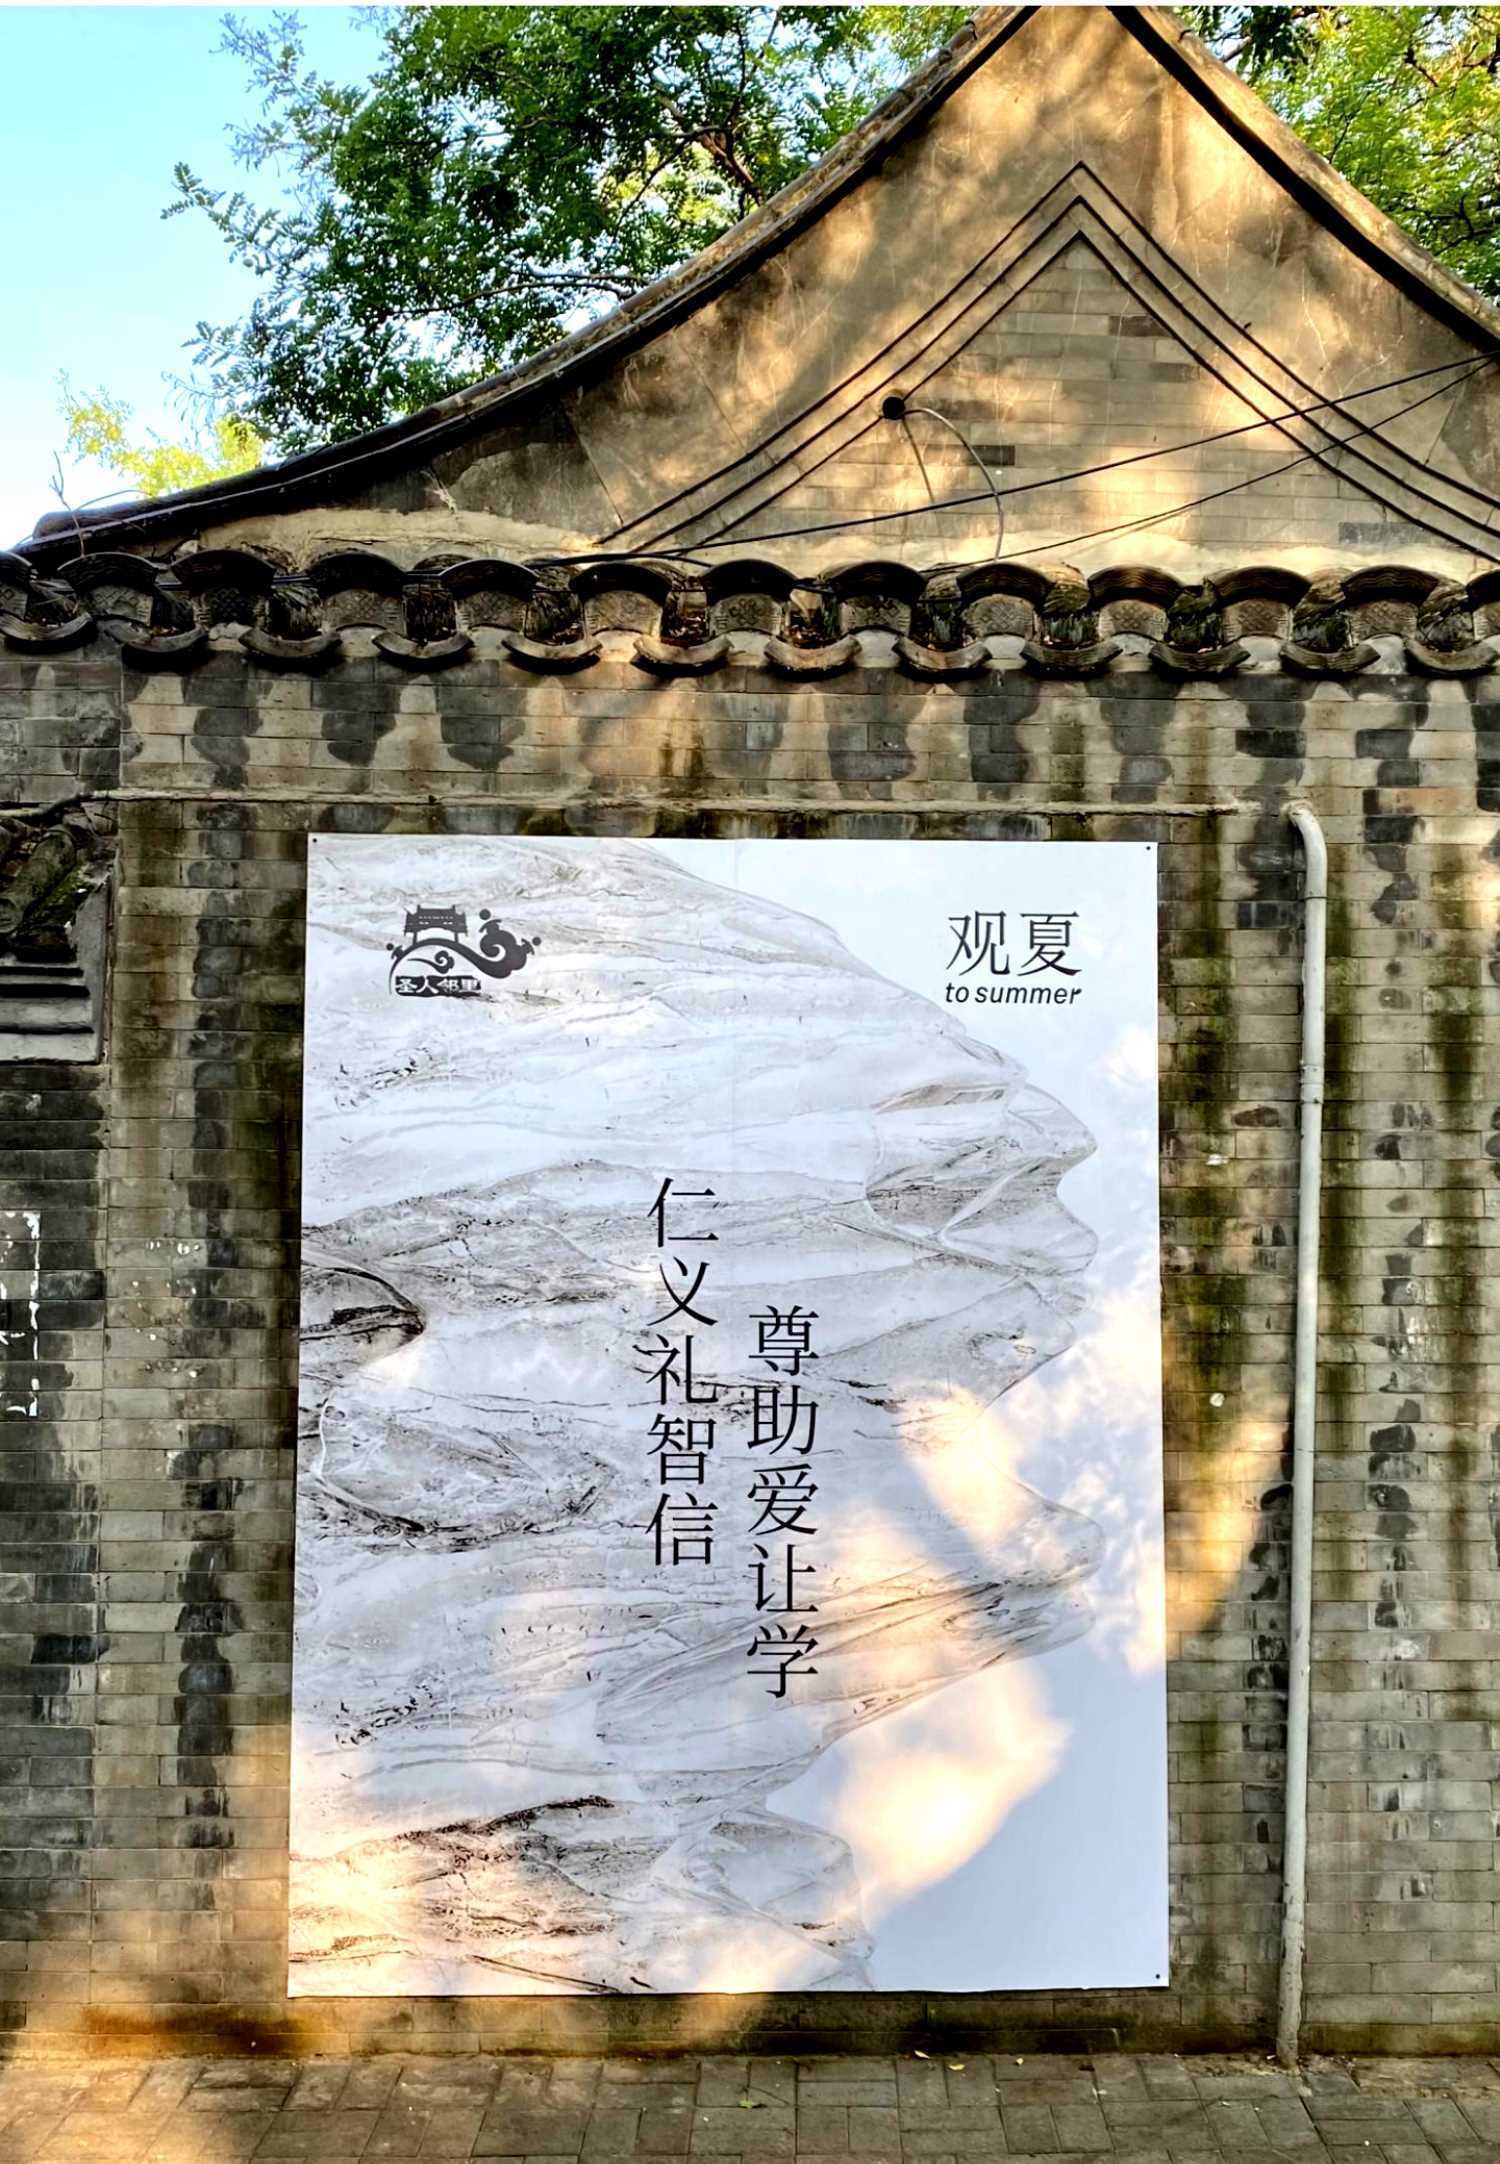 圣人邻里
观夏
to summer
尊助爱让学
仁义礼智信